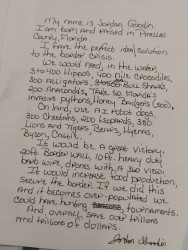 My name is Jordan Goodin
I am born and raised in Pinellas
County, Florida.
I have the perfect ideal solution
to the border crisis.
We would need, in the water,
3 to 400 Hippos, 400 Nile Crocodiles,
300 Alligators, 300 Bull Sharks,
200 Anaconda's, Take So. Florida's
invasive pythons, Honey Badgers (500),
On land, use A.I. robot dogs,
300 Cheetahs, 200 Leopards, 380
Lions and Tigers, Bears, Hyenas,
Byson, Cattle
It would be a great Victory.
20ft Border wall, 10ft. heavy duty
barb wire. drones with A 360 view.
It would increase food production,
secure the border. If we did this
And it becomes over populated we
could have hunting tournaments.
And, overall save over billions
and trillions of dollars.
Jordan Goodin